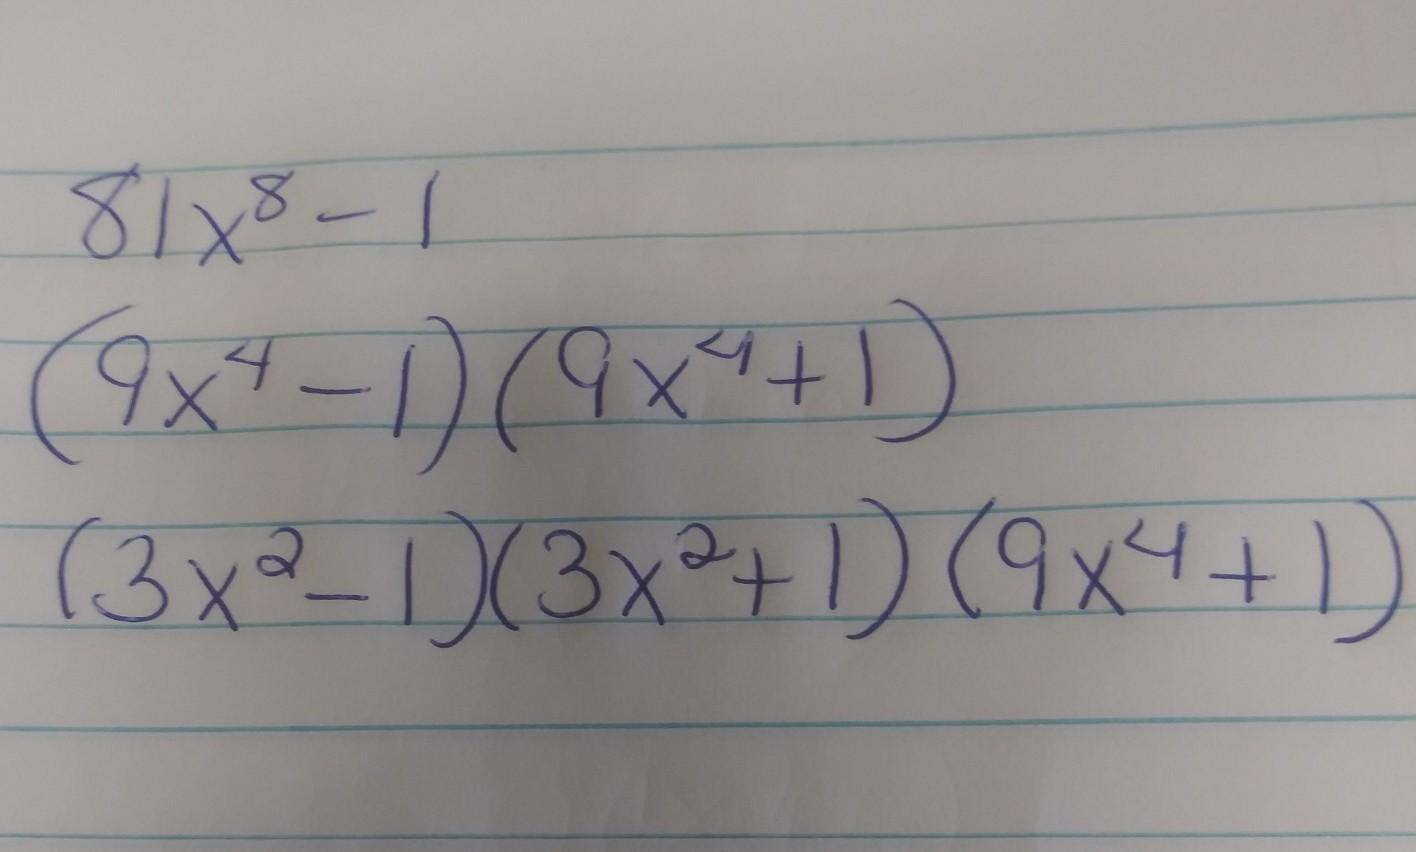 81x⁸ - 1
(9x⁴ - 1)(9x⁴ + 1)
(3x² - 1)(3x² + 1)(9x⁴ + 1)